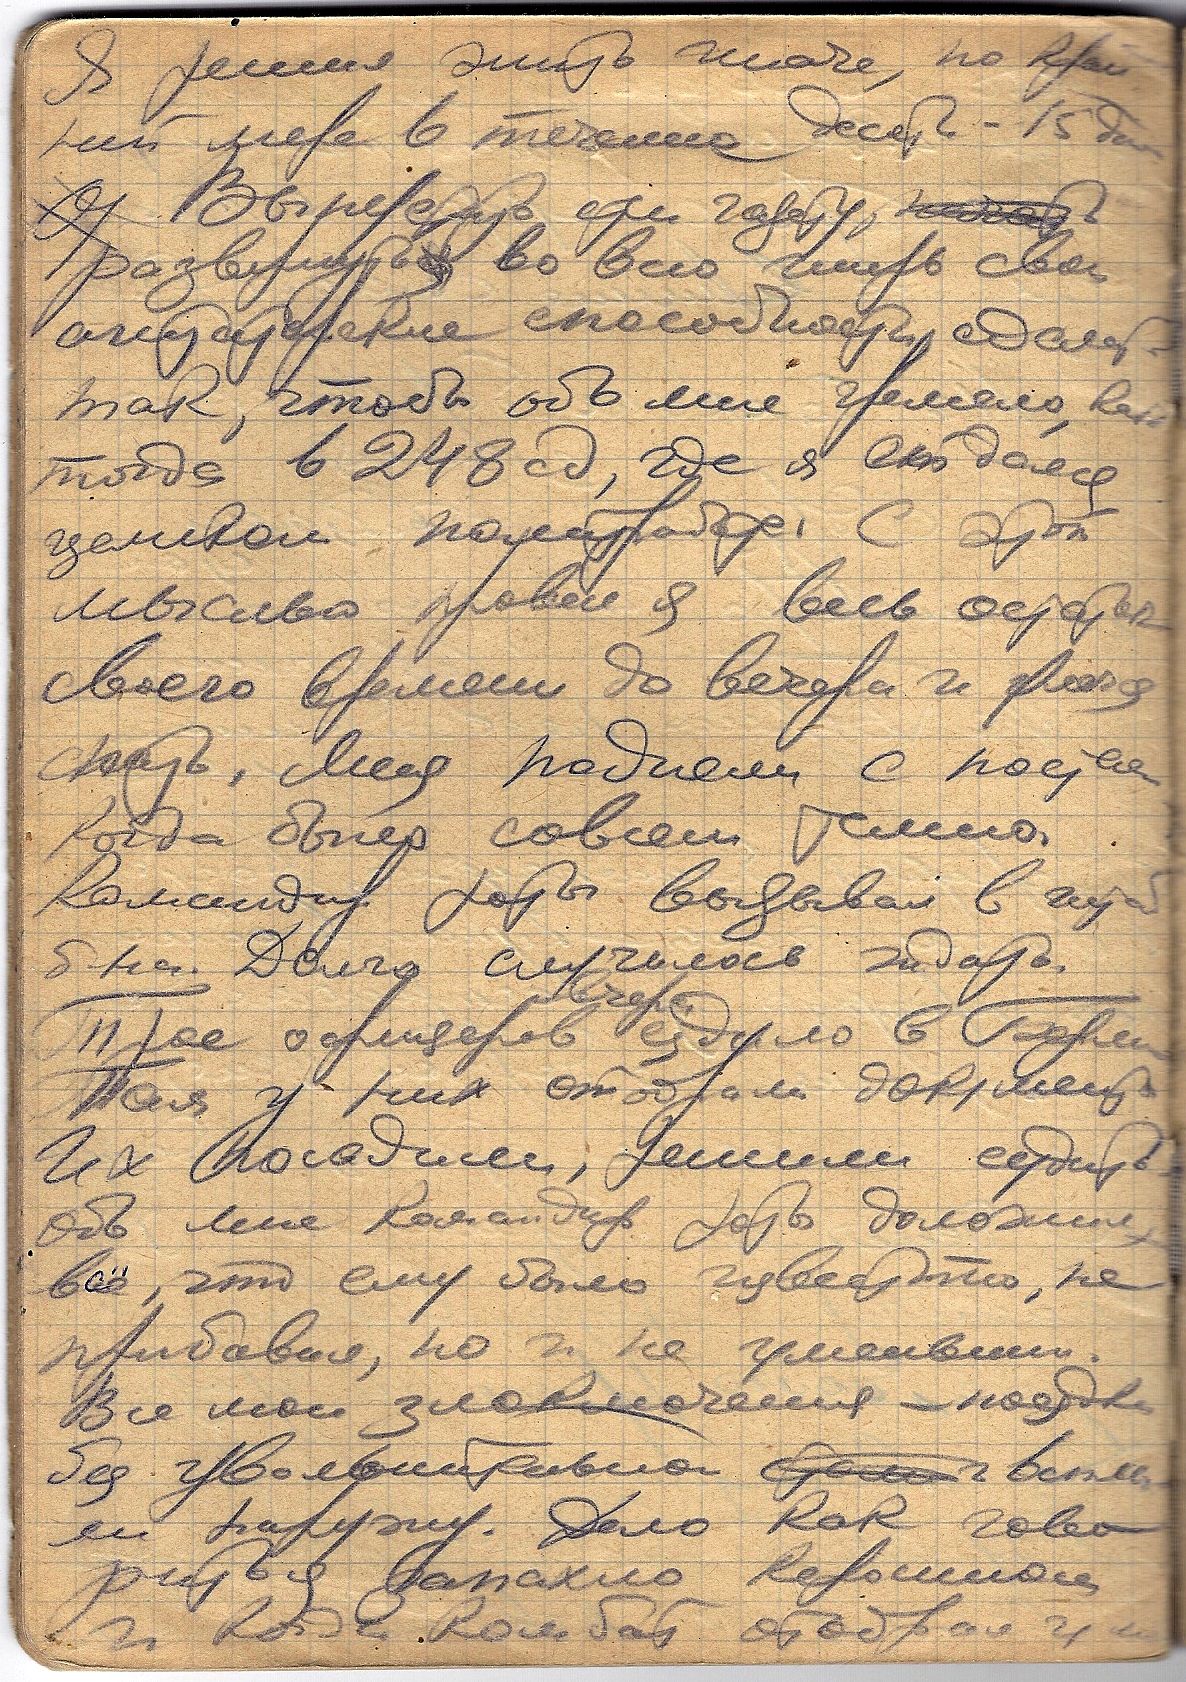 Я решил жить иначе, по край
ний мере в течении десять - 15 дней
Выпустить три газеты,
развернуть во всю ширь свои
агитаторские способности, сделать
так, чтобы обо мне гремело, как
тогда в 248 сд, где я отдался
целиком политработе. С этой
мыслью провел я весь остаток
своего времени до вечера и лег
спать. Меня подняли с постели
когда было совсем темно.
Командир роты вызывал в штаб
б-на. Долго случилось ждать.
Трое офицеров вчера ездило в Берлин
Там у них отобрали документы
Их посадили, решили судить
обо мне командир роты доложил
всё, что ему было известно, не
прибавив, но и не уменьшив.
Все мои злоключения – поездки
без увольнительной и всплы
ли наружу. Дело как гово
рится запахло керосином
и когда комбат отобрал у ме